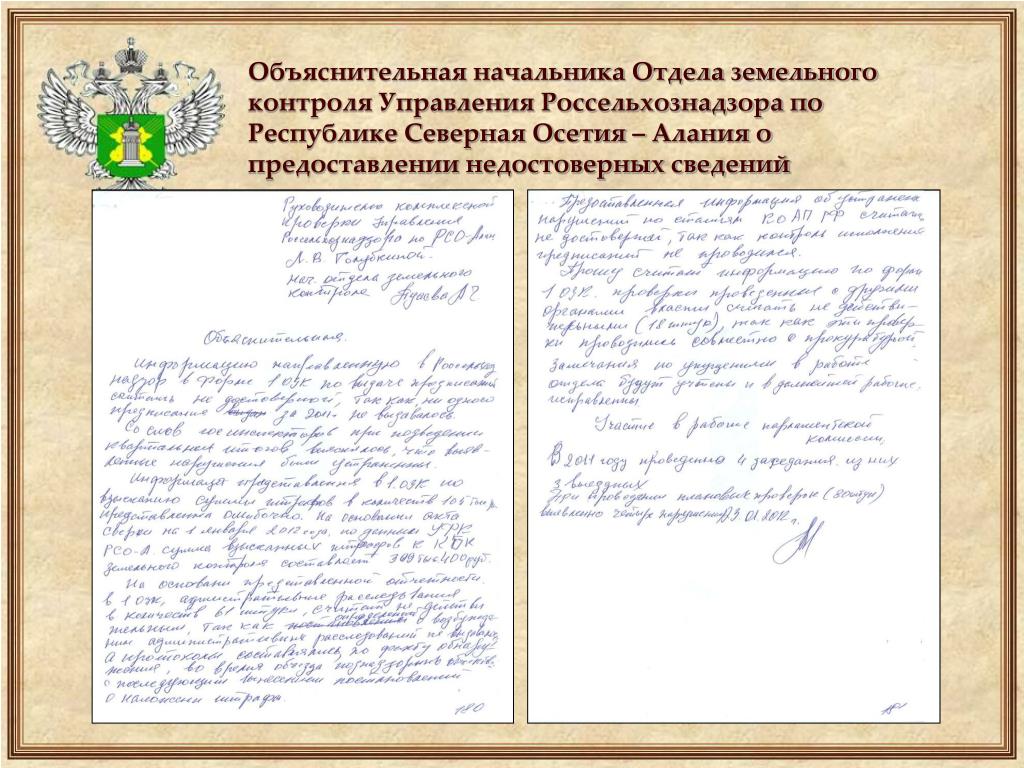 Объяснительная начальника Отдела земельного
контроля Управления Россельхознадзора по
Республике Северная Осетия – Алания о
предоставлении недостоверных сведений
Руководителю комплексной
проверки Управления
Россельхознадзора по РСО-Алан
Л. В. Голубкиной.
нач. отдела земельного
контроля
Объяснительная.
Информацию направленную в
надзор в форме 1 ОЗК по выдаче предписаний
считать не достоверной, так как, ни одного
предписание за 2011г не выдавалось.
Со слов госинспекторов при подведении
квартальных итогов выяснялось, что выяв-
ленные нарушения были устранены.
Информация представленная в 1.ОЗК по
взысканию суммы штрафов в количестве 105 тыс р.
представлена ошибочно. На основании акта
сверки на 1 января 2012 года, по данным УФК
РСО-А. сумма взысканных штрафов к КБК
земельного контроля составляет 309 тыс 400 руб.
На основани представленной отчетности.
в 1 ОЗК, административные расследования
в количестве 61 штуки, считать не действи
тельным, так как определений о возбужде-
нии административных расследований не
а протокола составлялись по факту обнару-
жения, во время объезда поднадзорных объектов.
с последующим вынесением постановлений
о наложени штрафа.
180
Предоставленная информация об устранен
нарушений по статьям КОАП РФ считать
не достоверной, так как контроль исполнения
предписаний не проводился.
Прошу считать информацию по форм
1 ОЗК. проверки проведенные с другими
органами власти считать не действи-
тельными (18 штук) так как эти провер-
ки проводились совместно с прокуратурой
Замечания по упущениям в работе
отдела будут учтены и в дальнейшей работе,
исправленны
Участие в работе парламентской
комиссии,
В 2011 году проведенно 4 заседания. из них
3 выездных
При проведении плановых проверок (30 штук)
выявленно четыре нарушения 23.01.2012 г.
181